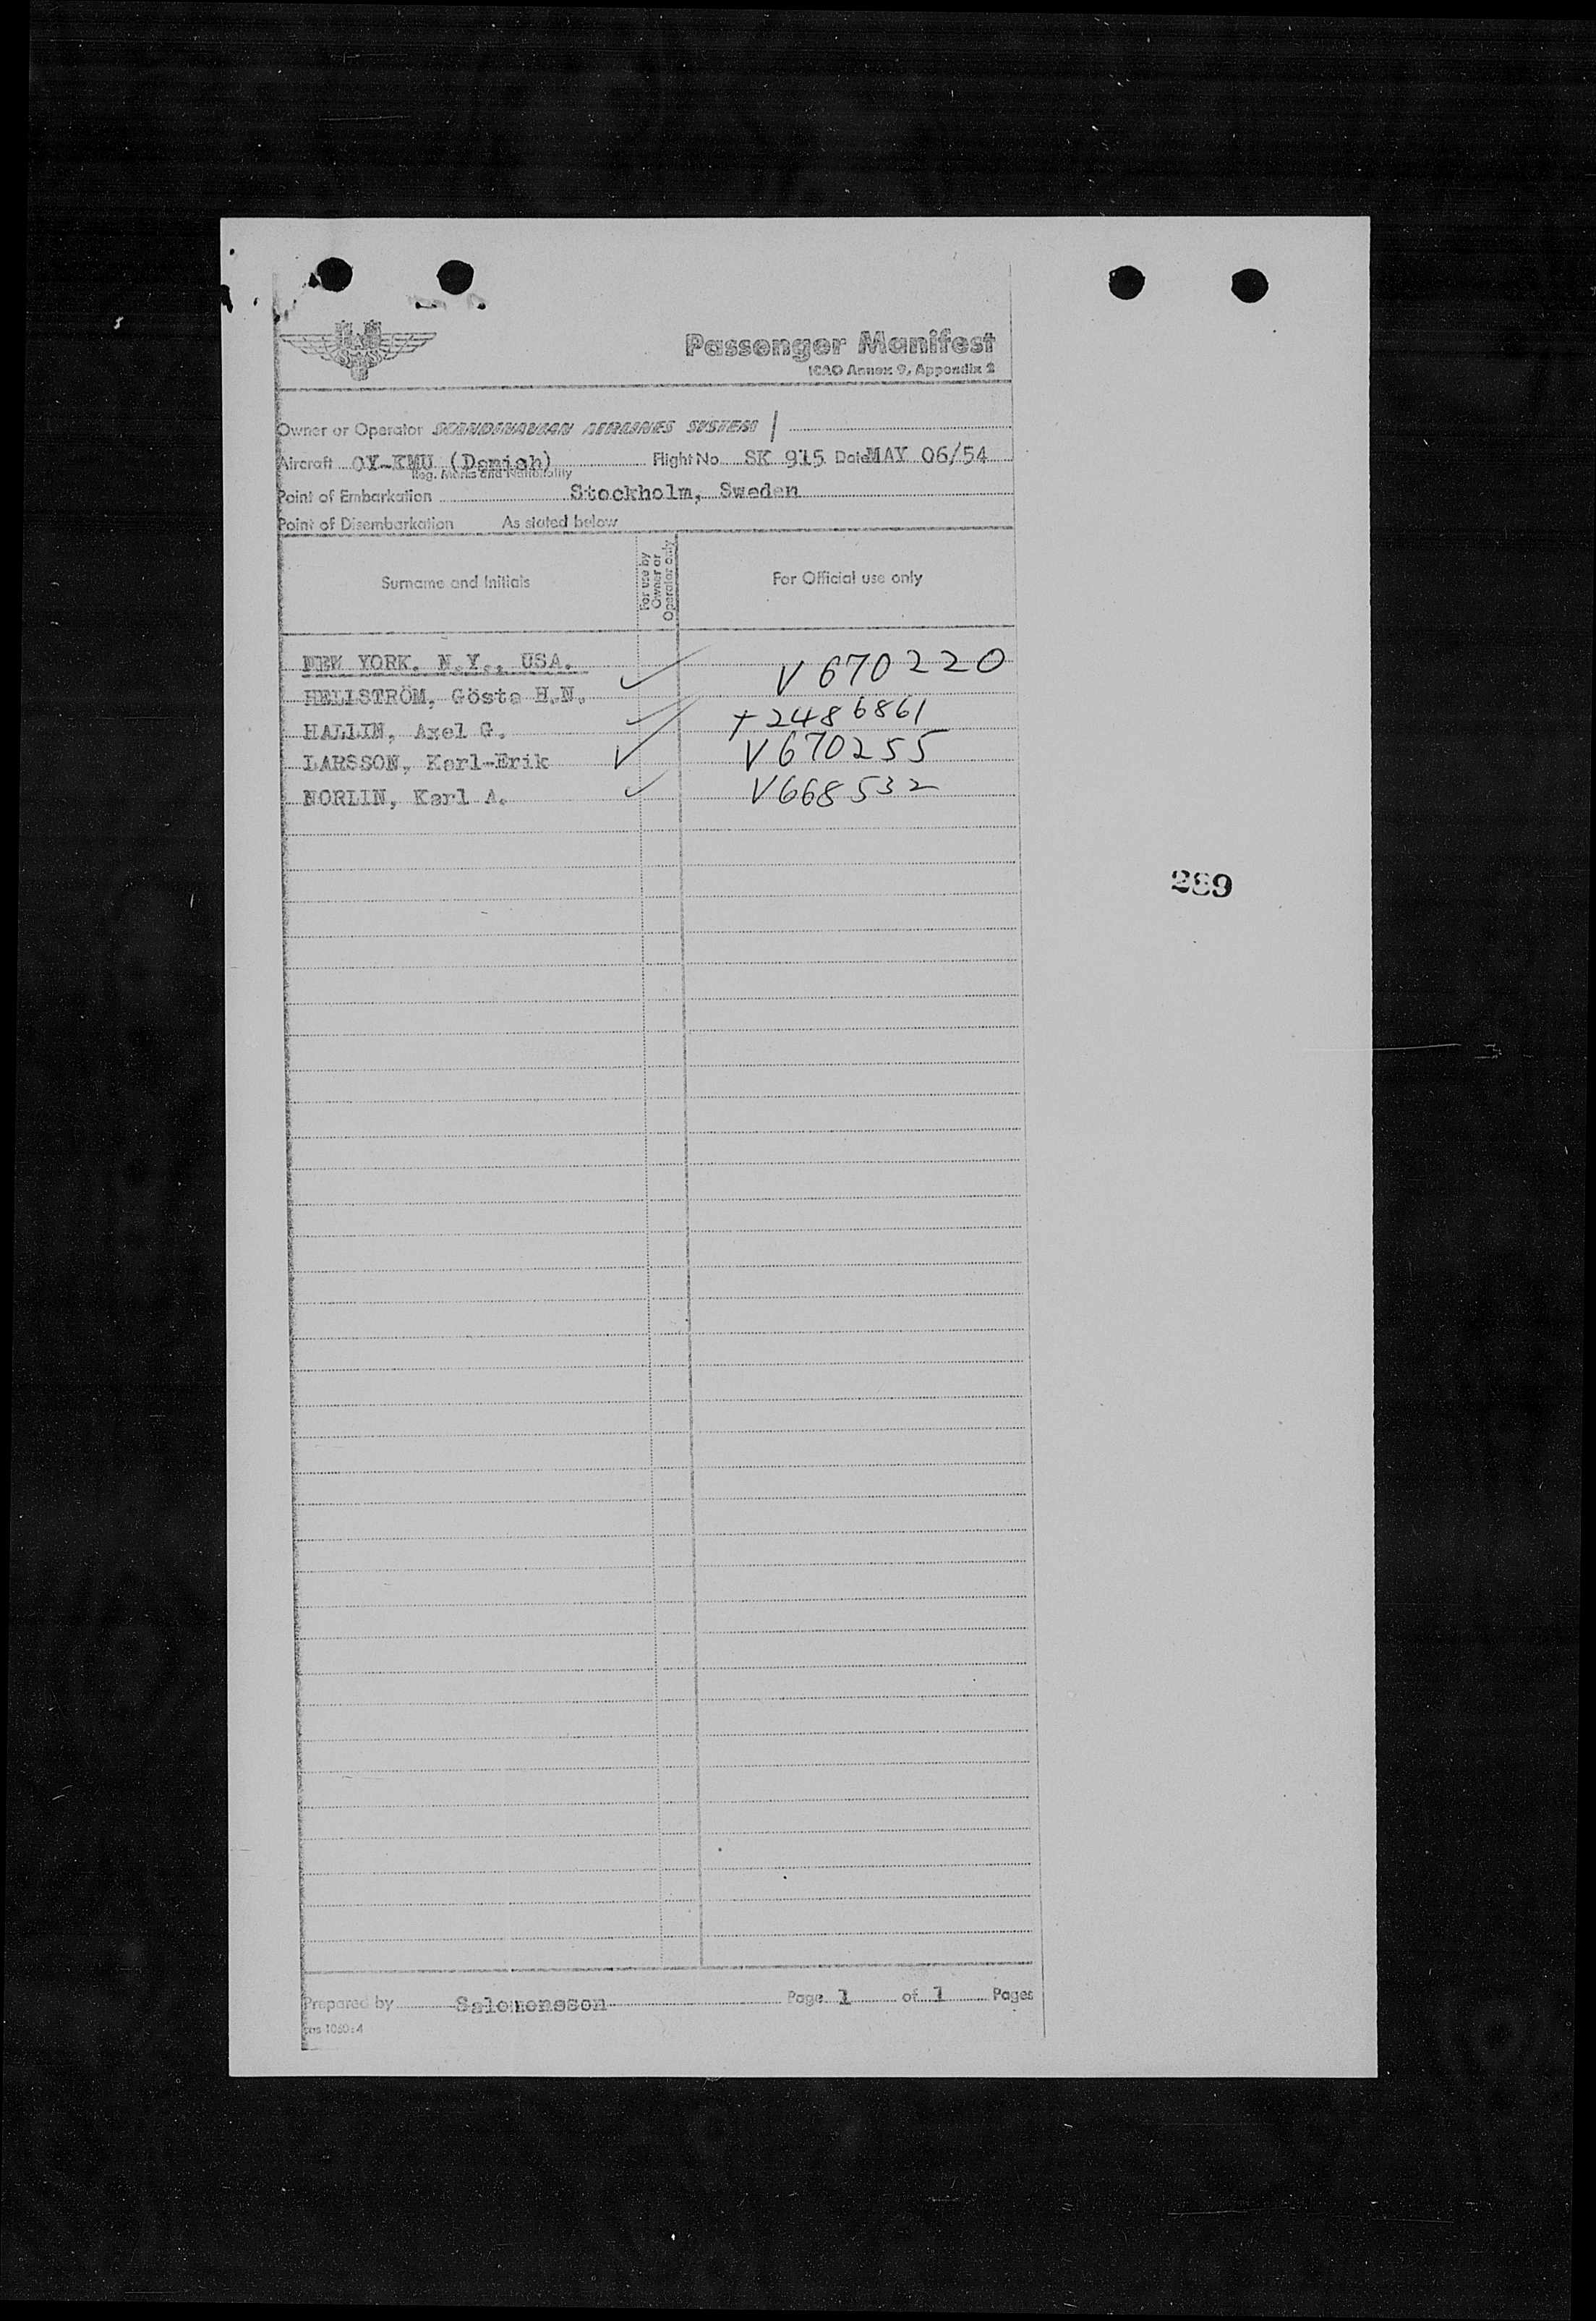 Passenger Manifest
ICAO Annex 9, Appendix 2
Owner or Operator SCANDINAVIAN AIRLINES SYSTEM /
Aircraft OY-KMU (Danish) Flight No. SK 915 Date MAY 06/54
Reg. Marks and Nationality
Point of Embarkation Stockholm, Sweden
Point of Disembarkation As stated below
Surname and Initials For use by Owner or Operator only For Official use only
NEW YORK. N.Y., USA.
HELLSTRÖM, Gösta H.N. ✓ V 670220
HALLIN, Axel G. ✓ + 2486861
LARSSON, Karl-Erik ✓ V 670255
NORLIN, Karl A. ✓ V668532
289
Prepared by Salomonsson Page 1 of 1 Pages